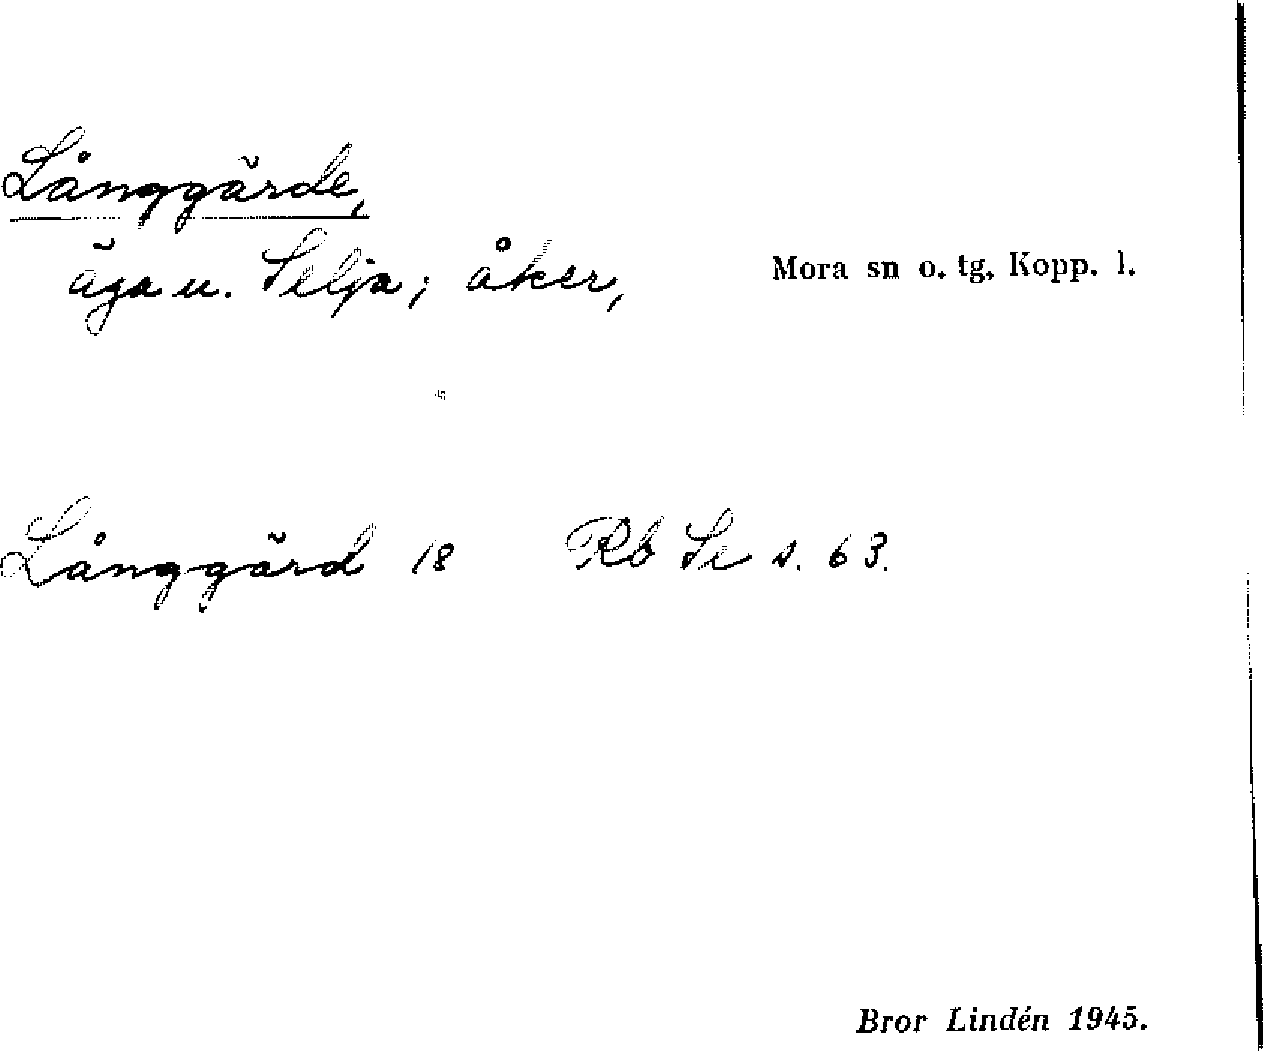 Långgärde,
äga u. Selja; åker,
Mora sn o. tg. Kopp. l.
Långgärd 18 Rb Se s. 63.
Bror Lindén 1945.